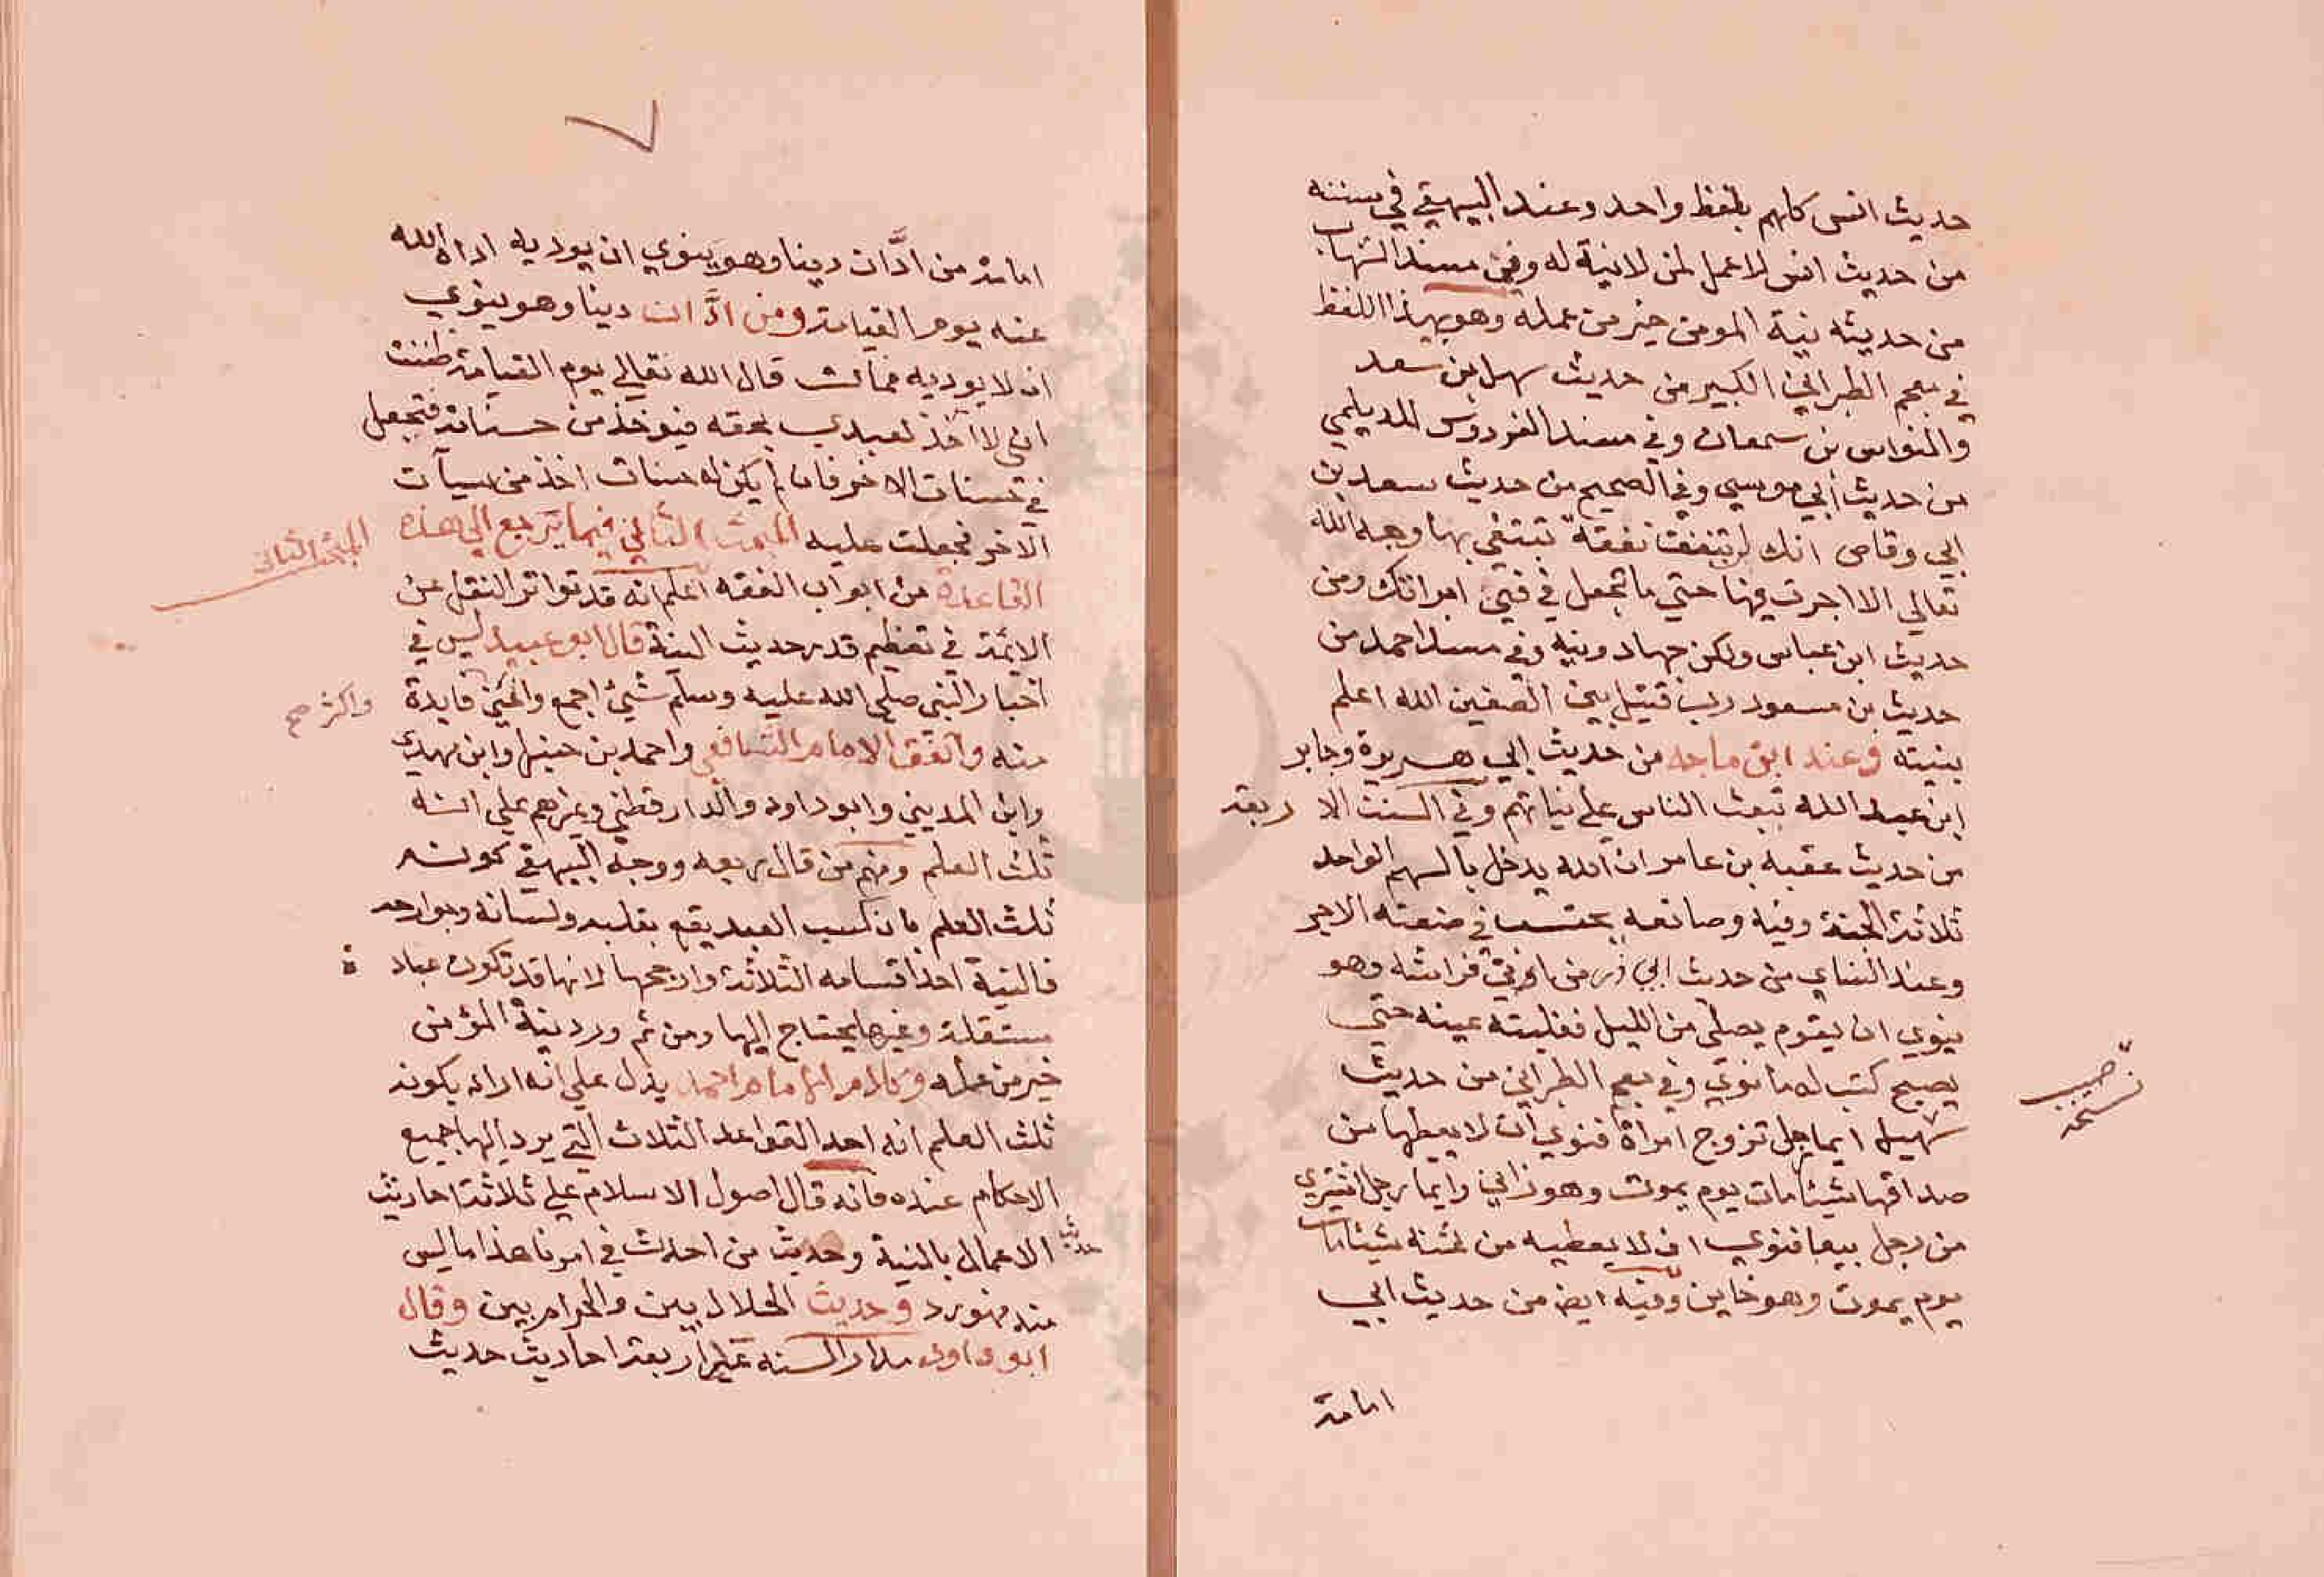 حديث انس كلهم بلفظ واحد وعند البيهقي في سننه
من حديث انس لا عمل لمن لا نية له وفي مسند الشهاب
من حديثه نية المومن خير من عمله وهو بهذا اللفظ
في معجم الطبراني الكبير من حديث سهل ابن سعد
والنواس بن سمعان وفي مسند الفردوس للديلمي
من حديث أبي موسي وفي الصحيح من حديث سعد بن
ابي وقاص انك لن تنفق نفقة تبتغي بها وجه الله
تعالي الا اجرت فيها حتي ما تجعل في في امراتك ومن
حديث ابن عباس ولكن جهاد ونيه وفي مسند احمد من
حديث بن مسعود رب قتيل بين الصفين الله اعلم
بنيته وعند ابن ماجه من حديث ابي هريرة وجابر
ابن عبد الله تبعث الناس علي نياتهم وفي السنن الا ربعة
من حديث عقبه بن عامر ان الله يدخل بالسهم الواحد
ثلاثة الجنة وفيه وصانعه يحتسب في صنعته الاجر
وعند النساي من حديث ابي ذر من اوي فراشه وهو
ينوي ان يقوم يصلي من الليل فغلبته عينه حتي
يصبح كتب له ما نوي وفي معجم الطبراني من حديث
صهيب نسخة
سهيل ايما رجل تزوج امراة فنوي ان لا يعطيها من
صداقها شيئا مات يوم يموت وهو زاني وايما رجل اشتري
من رجل بيعا فنوي ان لا يعطيه من ثمنه شيئا مات
يوم يموت وهو خاين وفيه ايض من حديث ابي
امامة
٧
امامة من ادَّان دينا وهو ينوي ان يوديه اداه الله
عنه يوم القيامة ومن ادَّان دينا وهو ينوي
ان لا يوديه فمات قال الله تعالي يوم القيامة ظننت
اني لا آخذ لعبدي بحقه فيوخذ من حسناته فتجعل
في حسنات الاخر فان لم يكن له حسنات اخذ من سيآت
الاخر فجعلت عليه المبحث الثاني فيما يرجع الي هذه
المبحث الثاني
القاعدة من ابواب الفقه اعلم انه قد تواتر النقل عن
الايمة في تعظيم قدر حديث النية قال ابو عبيد ليس في
اخبار النبي صلي الله عليه وسلم شيئ اجمع واغني فايدة
واكثر صح
منه واتفق الامام الشافعي واحمد بن حنبل وابن مهدي
وابن المديني وابو داود والدارقطني وغيرهم علي انه
ثلث العلم ومنهم من قال ربعه ووجه البيهقي كونه
ثلث العلم بان كسب العبد يقع بقلبه ولسانه وجوارحه
فالنية احد اقسامه الثلاثة وارجحها لانها قد تكون عباد ة
مستقلة وغيرها يحتاج اليها ومن ثم ورد نية المؤمن
خير من عمله وكلام الامام احمد يدل علي انه اراد بكونه
ثلث العلم انه احد القواعد الثلاث التي يرد اليها جميع
الاحكام عنده فانه قال اصول الاسلام علي ثلاثة احاديث
حديث الاعمال بالنية وحديث من احدث في امرنا هذا ما ليس
منه فهو رد وحديث الحلال بين والحرام بين وقال
ابو داود مدار السنه علي اربعة احاديث حديث